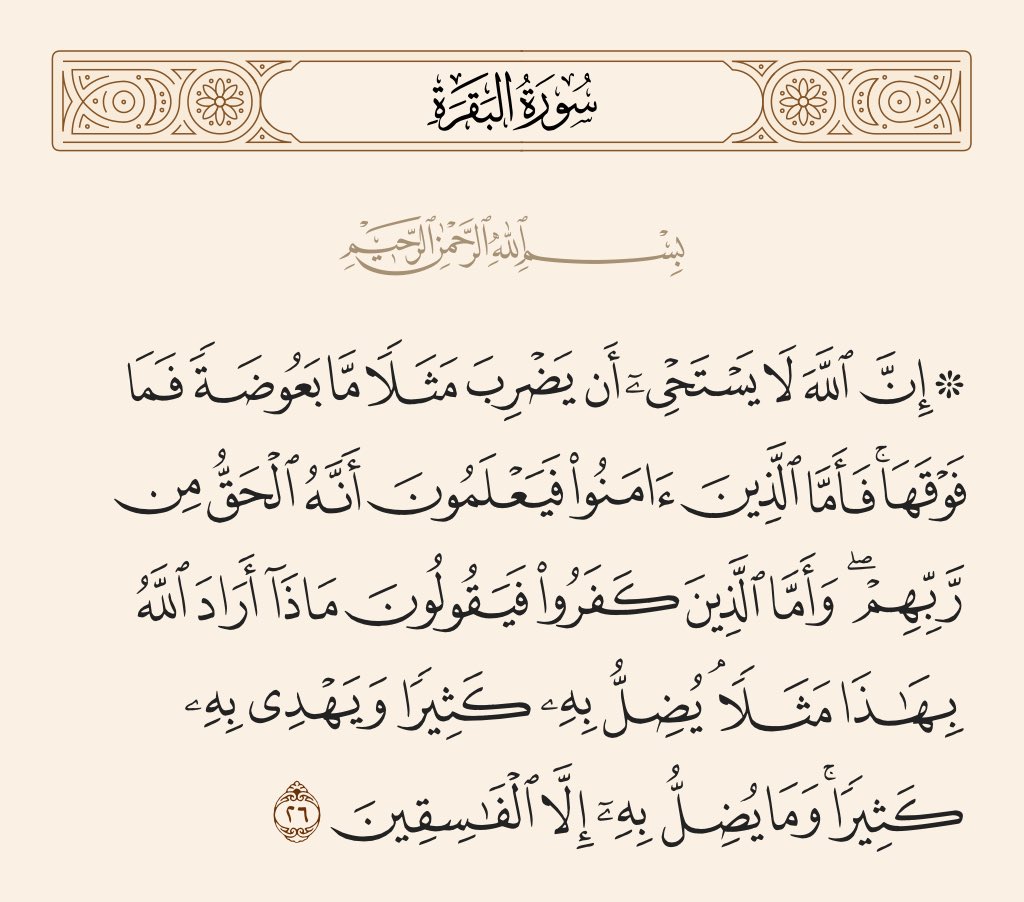 سُورَةُ البَقَرَةِ
بِسْمِ ٱللَّهِ ٱلرَّحْمَٰنِ ٱلرَّحِيمِ
۞ إِنَّ ٱللَّهَ لَا يَسْتَحْىِۦٓ أَن يَضْرِبَ مَثَلًا مَّا بَعُوضَةً فَمَا
فَوْقَهَا ۚ فَأَمَّا ٱلَّذِينَ ءَامَنُوا۟ فَيَعْلَمُونَ أَنَّهُ ٱلْحَقُّ مِن
رَّبِّهِمْ ۖ وَأَمَّا ٱلَّذِينَ كَفَرُوا۟ فَيَقُولُونَ مَاذَآ أَرَادَ ٱللَّهُ
بِهَٰذَا مَثَلًا ۘ يُضِلُّ بِهِۦ كَثِيرًا وَيَهْدِى بِهِۦ
كَثِيرًا ۚ وَمَا يُضِلُّ بِهِۦٓ إِلَّا ٱلْفَٰسِقِينَ ٢٦